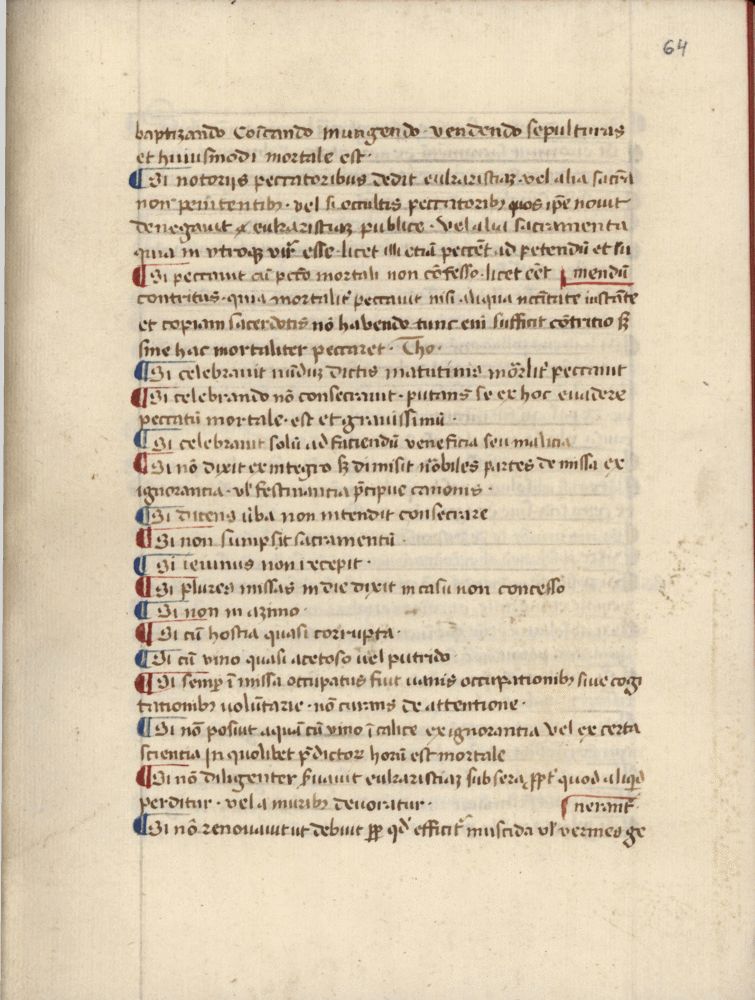 64
baptizando Coīcando mungendo · vendendo sepulturas
et huiusmodi mortale est ·
¶ Si notorijs peccatoribus dedit eukaristiaȝ · vel alia sacrā
non penitentibꝫ · vel si occultis peccatoribꝫ quos ipē nouit
denegauit eukaristiaȝ publice · vel alia sacramenta
quia in vtroqȝ esse · licet illi etiā peccēt ad petendū et su
¶ Si peccauit cū mortali non cōfesso · licet eēt mendū
contritus · quia mortalit̄ peccauit nisi aliqua nc̄itate instāte
et copiam sacerdotis nō habendo tunc eni sufficit cōtritio sꝫ
sine hac mortaliter peccaret · Tho ·
¶ Si celebrauit nūdum dictis matutinis mōrlit̄ peccauit
¶ Si celebrando nō consecrauit · putans se ex hoc euadere
peccatū mortale · est et grauissimū ·
¶ Si celebrauit solū ad faciendū veneficia seu malicia
¶ Si nō dixit ex integro sꝫ dimisit nōbiles partes de missa ex
ignorantia · vl̄ festinantia p̄cipue canonis ·
¶ Si dicens ūba non intendit consecrare
¶ Si non sumpsit sacramentū ·
¶ Si ieiunus non recepit ·
¶ Si plures missas in die dixit in casu non concesso
¶ Si non in azimo ·
¶ Si cū hostia quasi corrupta ·
¶ Si cū vino quasi acetoso uel putrido ·
¶ Si semp̄ ī missa occupatus fuit uanis occupationibꝫ siue cogi
tationibꝫ uolūtarie · nō curans de attentione ·
¶ Si nō posuit aquā cū vino ī calice ex ignorantia vel ex certa
scientia In quolibet p̄dictor horū est mortale
¶ Si nō diligenter ẜuauit eukaristiaȝ sub sera quod aliqd̄
perditur · vel a muribꝫ deuoratur · nerant̄
¶ Si nō renouauit ut debuit qd̄ efficit̄ muscida vl̄ vermes ge